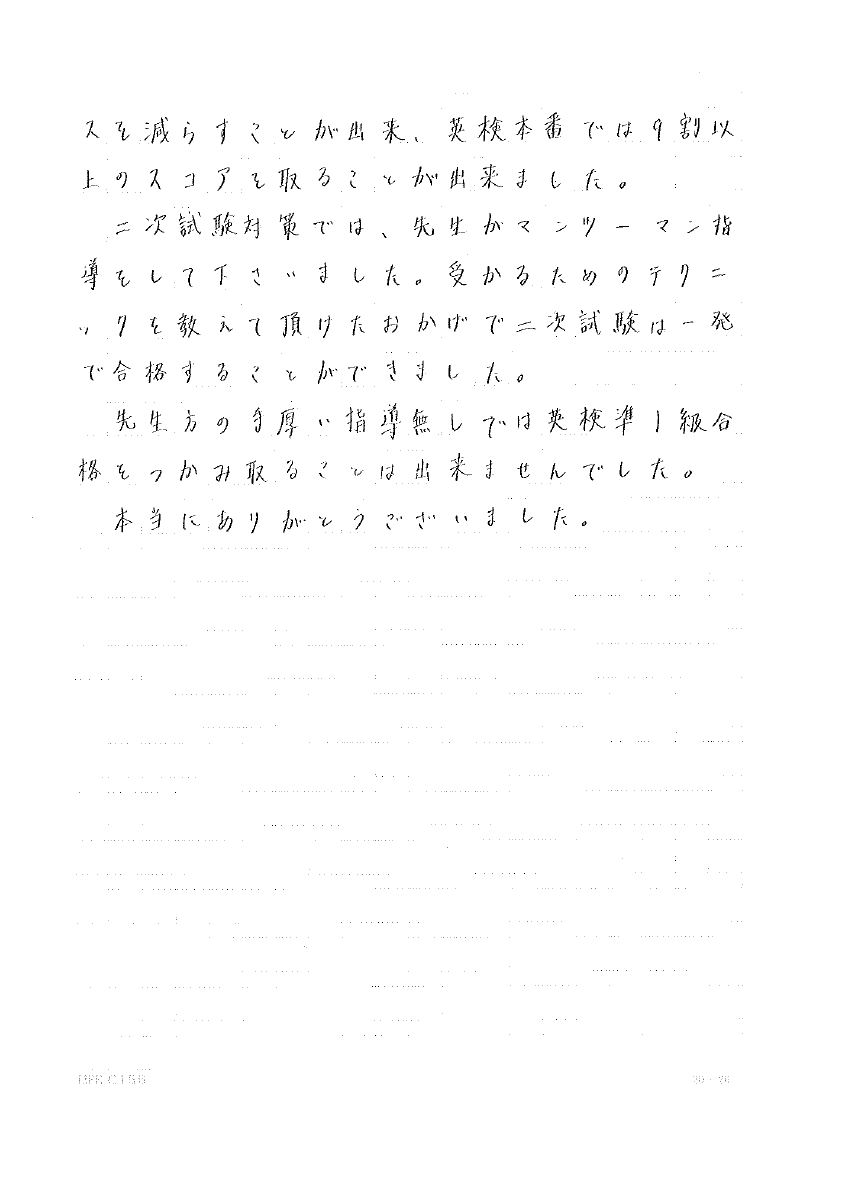 スを減らすことが出来、英検本番では9割以
上のスコアを取ることが出来ました。
二次試験対策では、先生がマンツーマン指
導をして下さいました。受かるためのテクニ
ックを教えて頂けたおかげで二次試験は一発
で合格することができました。
先生方の手厚い指導無しでは英検準1級合
格をつかみ取ることは出来ませんでした。
本当にありがとうございました。